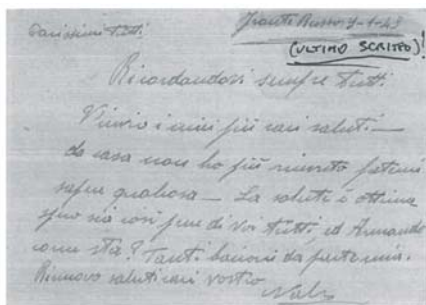 Carissimi Tutti Fronte Russo 7-1-43
(ULTIMO SCRITTO)!
Ricordandovi sempre tutti
Vi invio i miei più cari saluti —
da casa non ho più ricevuto fatemi
sapere qualcosa — La salute è ottima
spero sia così pure di Voi tutti, ed Armando
come sta? Tanti bacioni da parte mia.
Rinnovo saluti cari vostro